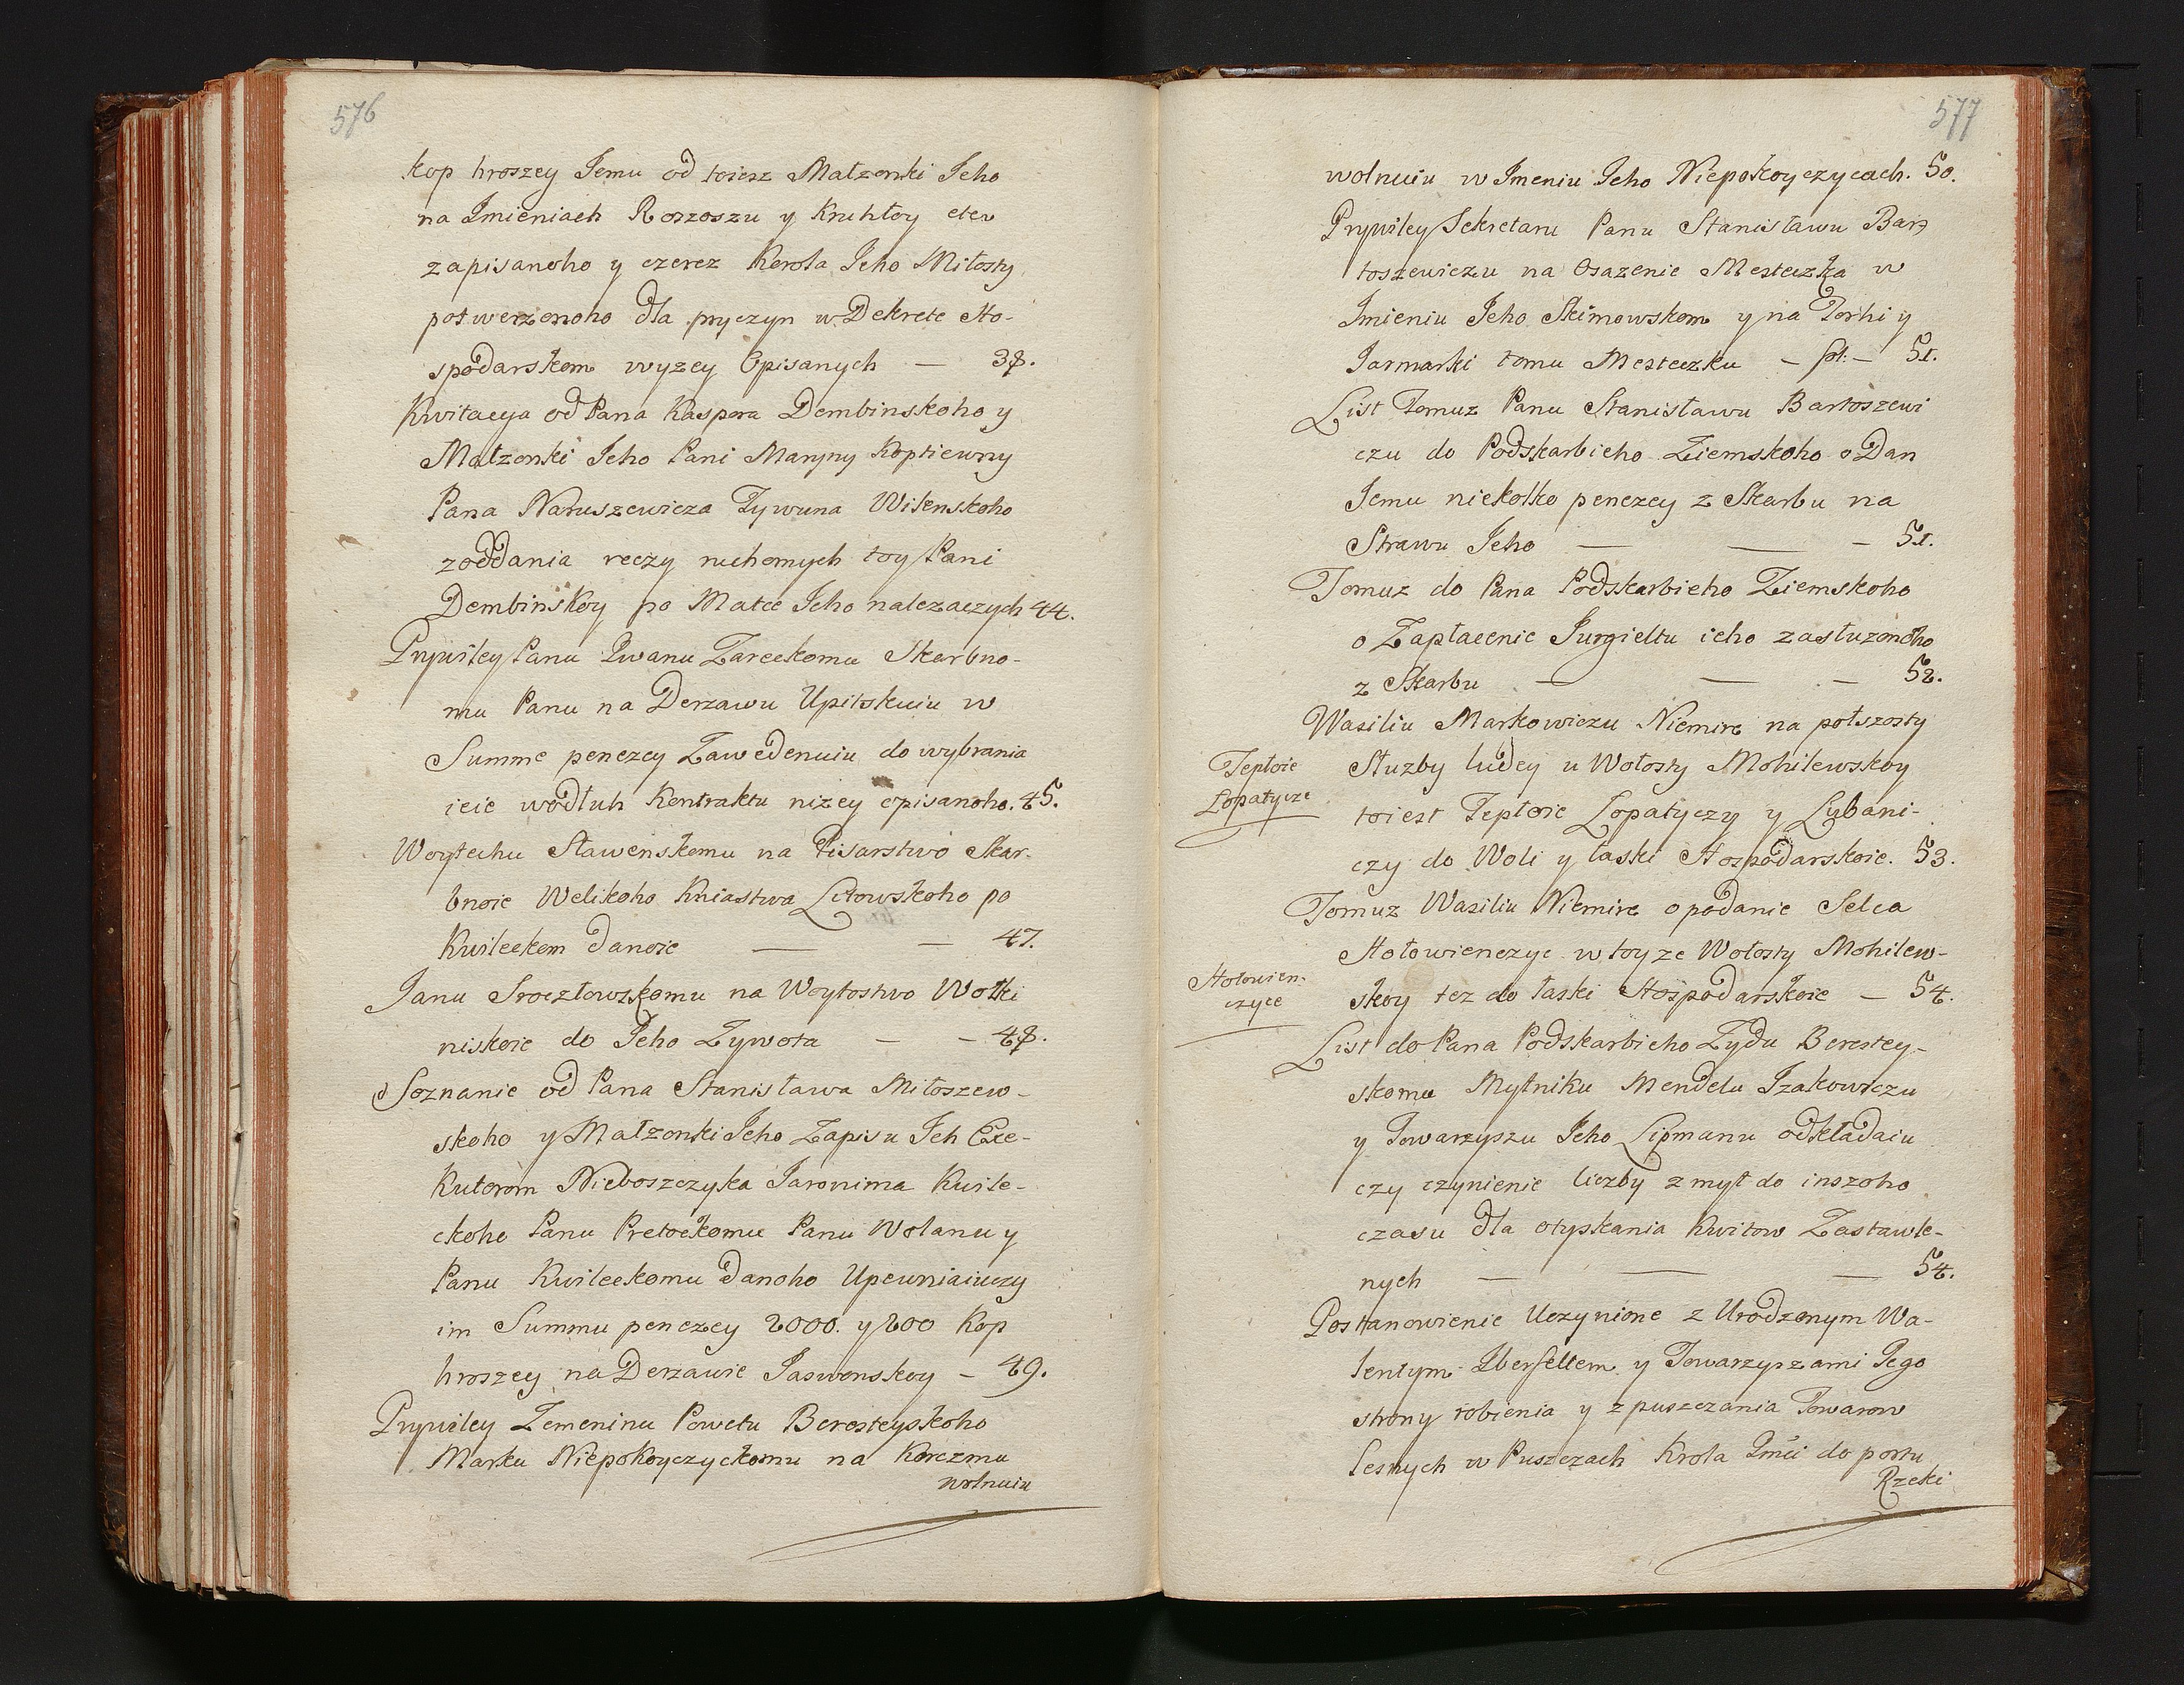 576
kop hroszey Jemu od toiesz Małzonki Jeho
na Jmieniach Rozzoszu y Kruhłoy etc
zapisanoho y czerez Korola Jeho Miłosty
potwerzonoho dla pryczyn w Dekrete Ho-
spodarskom wyzey Opisanych — 38.
Kwitacya od Pana Kaspera Dembinskoho y
Małzonki Jeho Pani Maryny Koptiewny
Pana Naruszewicza Tywuna Wilenskoho
zoddania reczy ruchomych toy Pani
Dembinskoy po Matce Jeho nalezaczych 44.
Prywiley Panu Iwanu Zareckomu Skarbno-
mu Panu na Derzawu Upitskuiu w
Summe penezey Zawedenuiu do wybrania
ieie wodłuh Kontraktu nizey opisanoho. 45.
Woytechu Sławenskomu na Pisarstwo Skar-
bnoie Welikoho Kniastwa Litowskoho po
Kwileckom danoie — — 47.
Janu Sroczłowskomu na Woytostwo Wołki
niskoie do Jeho Zywota — — 48.
Soznanie od Pana Stanisława Miłoszew-
skoho y Małzonki Jeho Zapisu Jeh Exe-
kutorom Nieboszczyka Jaronima Kwile-
ckoho Panu Pretockomu Panu Wolanu y
Panu Kwileckomu danoho Upewniaiuczy
im Summu penezey 2000. y 200 Kop
hroszey na Derzawie Jaswonskoy — 49.
Prywiley Zemeninu Powetu Beresteyskoho
Marku Niepokoyczyckomu na Korczmu
wolnuiu
577
wolnuiu w Jmeniu Jeho Niepokoyczycach. 50.
Prywiley Sekretaru Panu Stanisławu Bar-
toszewiczu na Osazenie Mesteczka w
Jmieniu Jeho Skimowskom y na Torhi y
Jarmarki tomu Mesteczku — fol: — 51.
List Tomuz Panu Stanisławu Bartoszewi
czu do Podskarbieho Ziemskoho o Dan
Jemu niekolko penezey z Skarbu na
Strawu Jeho — — — 51.
Tomuz do Pana Podskarbieho Ziemskoho
o Zapłacenie Jurgieltu ieho zasłuzonoho
z Skarbu — — — 52.
Wasiliu Markowiczu Niemire na połszosty
Słuzby ludey u Wołosty Mohilewskoy
toiest Tepłoie Łopatyczy y Lubani-
czy do Woli y łaski Hospodarskoie. 53.
Tepłoie
Łopatycze
Tomuz Wasiliu Niemire o podanie Selca
Hołowienczyc w toy ze Wołosty Mohilew-
skoy tez do łaski Hospodarskoie — 54.
Hołowien-
czyce
List do Pana Podskarbieho Zydu Berestey-
skomu Mytniku Mendelu Izakowiczu
y Towarzyszu Jeho Lipmanu odkładaiu
czy czynienie liczby z myt do inszoho
czasu dla otyskania Kwitow Zastawle-
nych — — — 54.
Postanowienie Uczynione z Urodzonym Wa-
lentym Uberfeltem y Towarzyszami Jego
strony robienia y z puszczania Towarow
lesnych w Puszczach Krola Jmći do portu
Rzeki